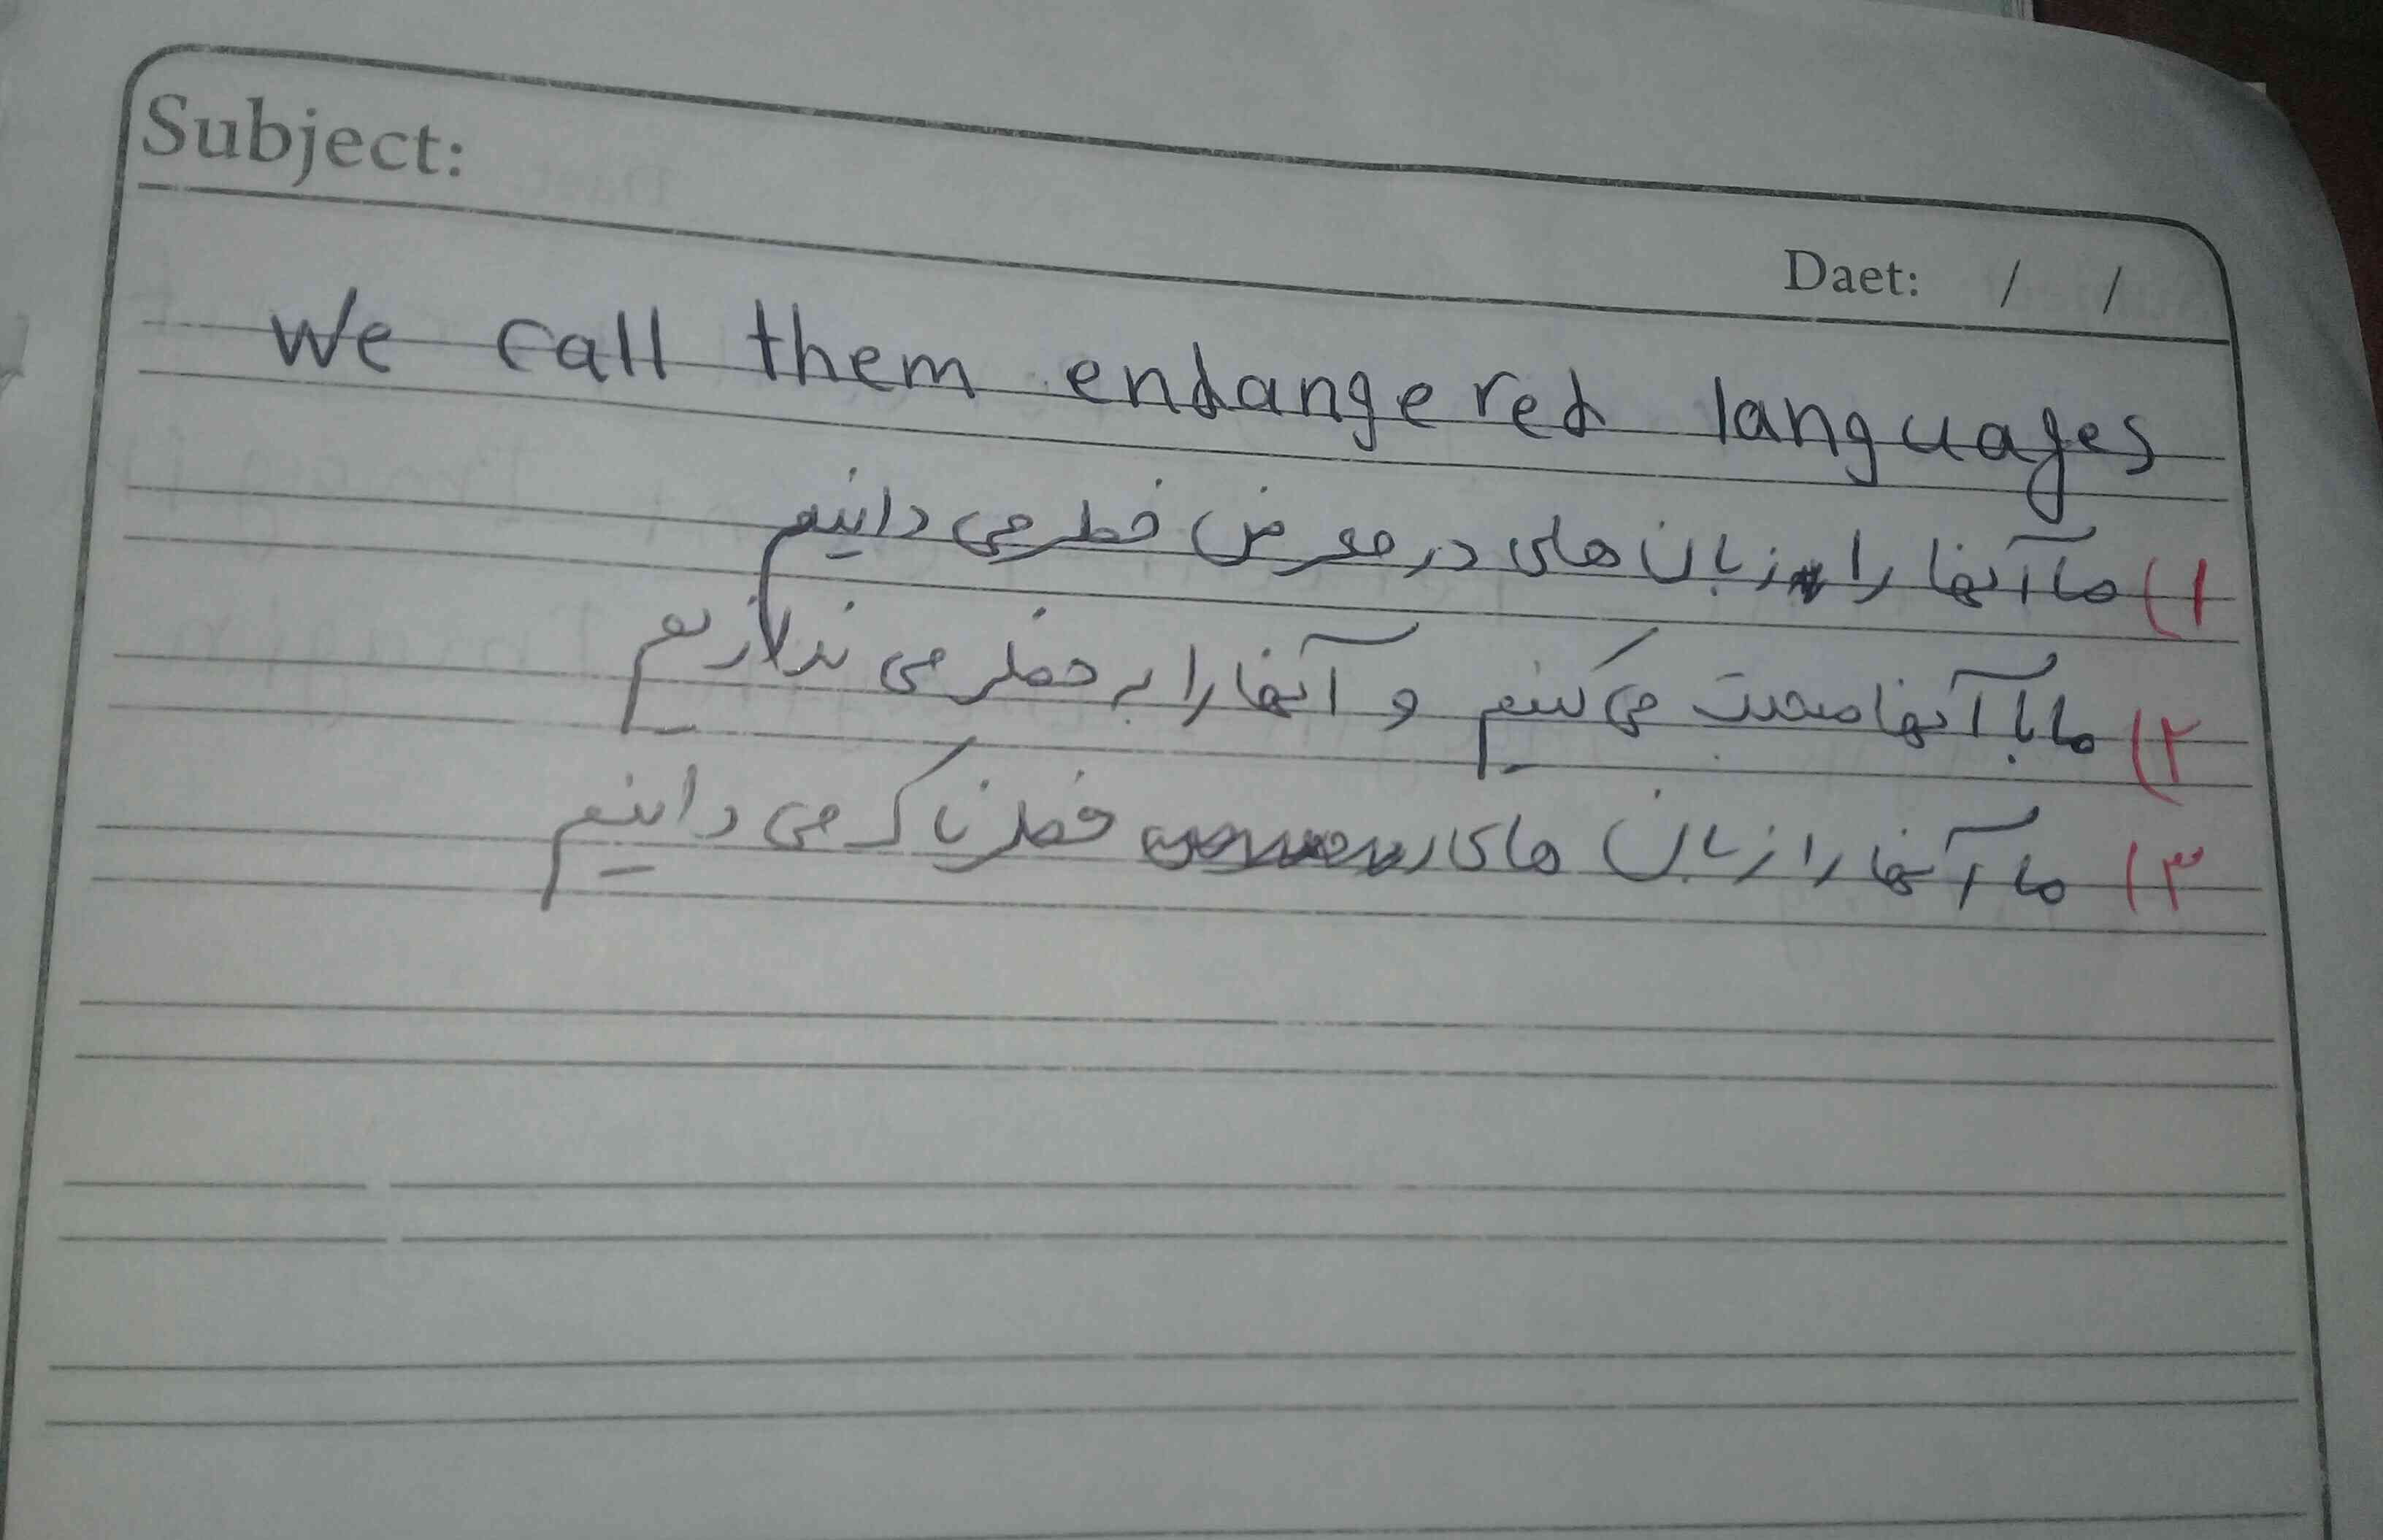 Subject:
Daet: / /
We call them endangered languages
۱) ما آنها را زبان های در معرض خطر می دانیم
۲) ما با آنها صحبت می کنیم و آنها را به خطر می ندازیم
۳) ما آنها را زبان های خطرناک می دانیم